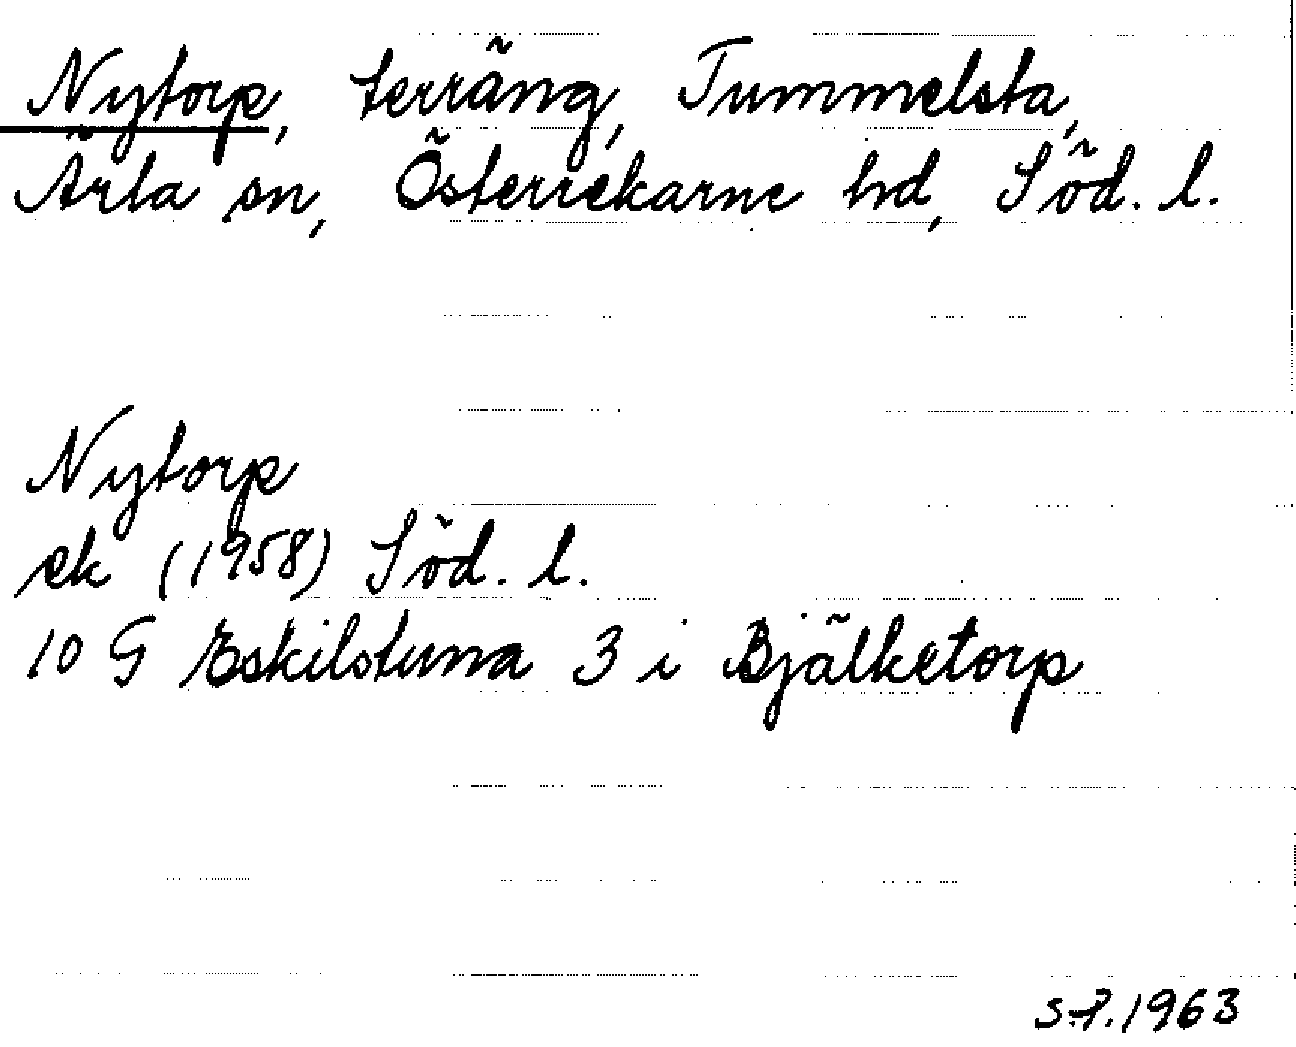 Nytorp, terräng, Tummelsta,
Ärla sn, Österrekarne hd, Söd. l.
Nytorp
ek (1958) Söd. l.
10 G Eskilstuna 3 i Bjälketorp
S.P. 1963